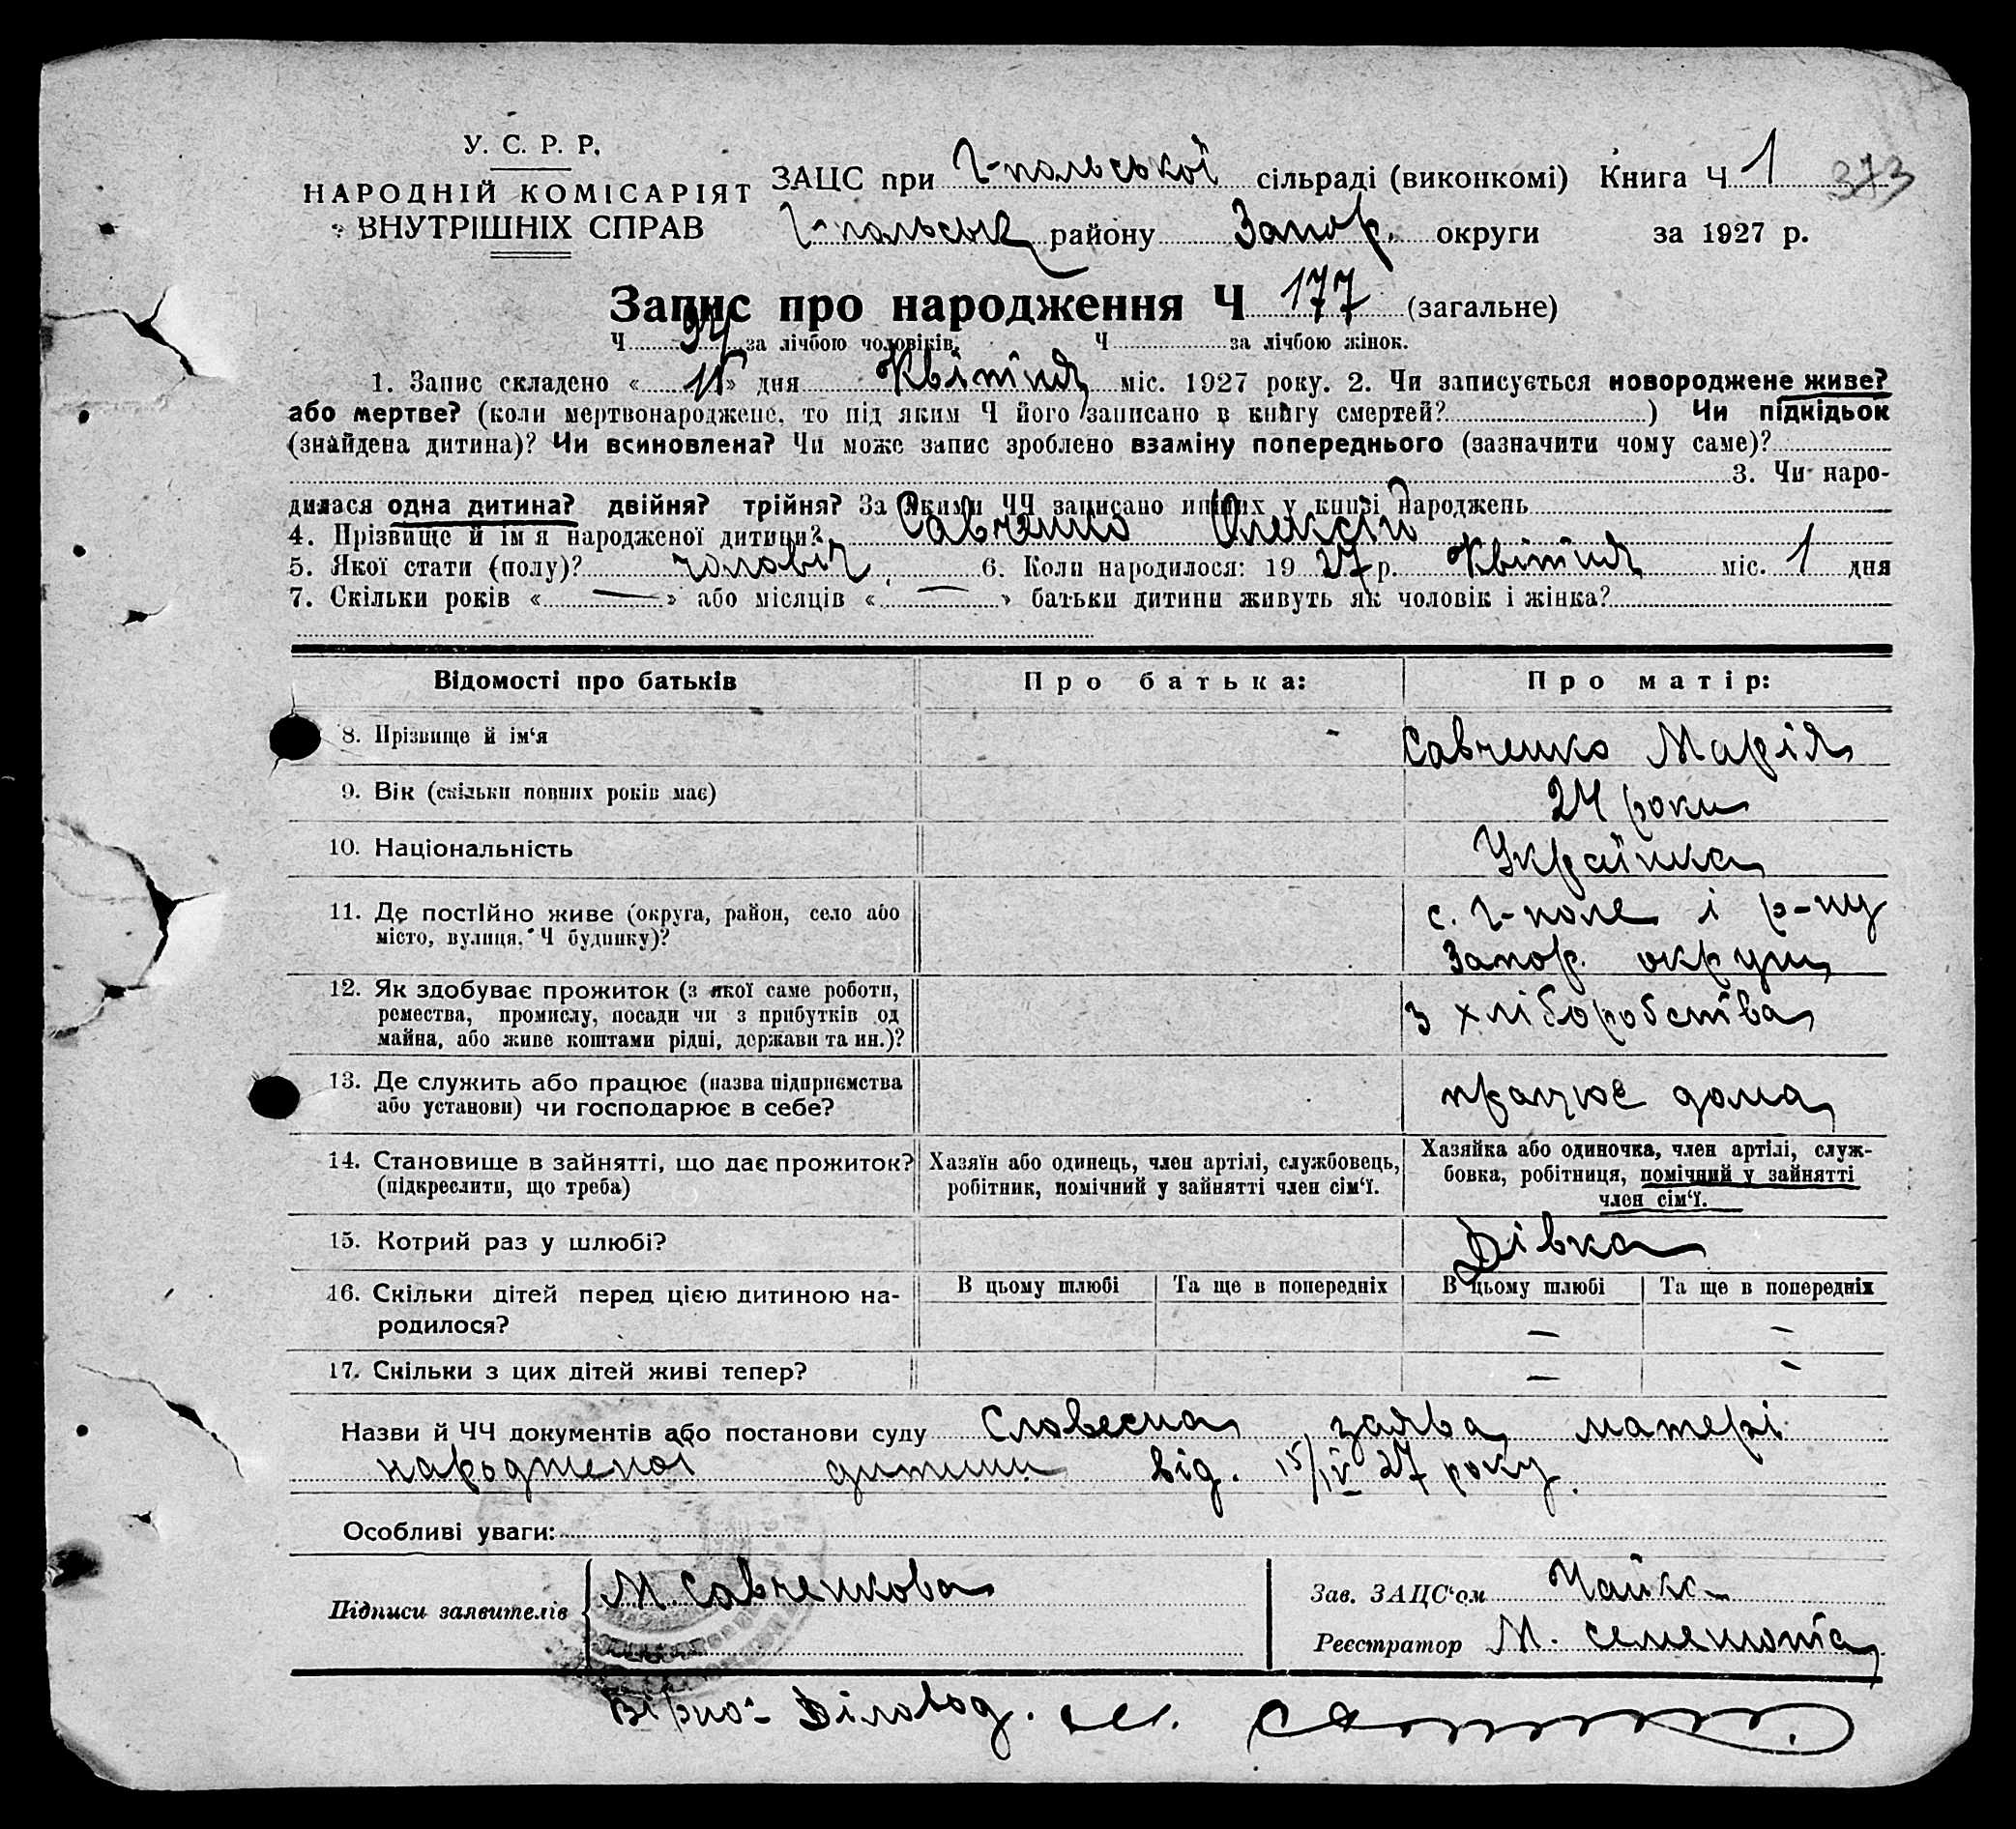 У. С. Р. Р.
НАРОДНІЙ КОМІСАРІЯТ
ВНУТРІШНІХ СПРАВ
ЗАЦС при Г-польської сільраді (виконкомі) Книга Ч 1 373
Г-польськ району Запор. округи за 1927 р.
Запис про народження Ч 177 (загальне)
Ч 94 за лічбою чоловіків. Ч за лічбою жінок.
1. Запис складено « 15 » дня Квітня міс. 1927 року. 2. Чи записується новороджене живе?
або мертве? (коли мертвонароджене, то під яким Ч його записано в книгу смертей? ) Чи підкідьок
(знайдена дитина)? Чи всиновлена? Чи може запис зроблено взаміну попереднього (зазначити чому саме)?
3. Чи наро-
дилася одна дитина? двійня? трійня? За якими ЧЧ записано инших у книзі народжень
4. Прізвище й імя народженої дитини? Савченко Олексій
5. Якої стати (полу)? чоловіч. 6. Коли народилося: 19 27 р. Квітня міс. 1 дня
7. Скільки років « — » або місяців « — » батьки дитини живуть як чоловік і жінка?
Відомості про батьків Про батька: Про матір:
8. Прізвище й ім‘я Савченко Марія
9. Вік (скільки повних років має) 24 роки
10. Національність Українка
11. Де постійно живе (округа, район, село або с. Г-поле і р-ну
місто, вулиця, Ч будинку)? Запор. округи
12. Як здобуває прожиток (з якої саме роботи, з хліборобства
ремества, промислу, посади чи з прибутків од
майна, або живе коштами рідні, держави та ин.)?
13. Де служить або працює (назва підприємства працює дома
або установи) чи господарює в себе?
14. Становище в зайнятті, що дає прожиток? Хазяїн або одинець, член артілі, службовець, Хазяйка або одиночка, член артілі, служ-
(підкреслити, що треба) робітник, помічний у зайнятті член сім‘ї. бовка, робітниця, помічний у зайнятті
член сім‘ї.
15. Котрий раз у шлюбі? Дівка
16. Скільки дітей перед цією дитиною на- В цьому шлюбі Та ще в попередніх В цьому шлюбі Та ще в попередніх
родилося? — —
17. Скільки з цих дітей живі тепер? — —
Назви й ЧЧ документів або постанови суду Словесна заява матері
народженої дитини від. 15/IV 27 року.
Особливі уваги:
Підписи заявителів М Савченкова
Зав. ЗАЦС‘ом Чайка
Реєстратор М.
Вірно: Діловод. М.